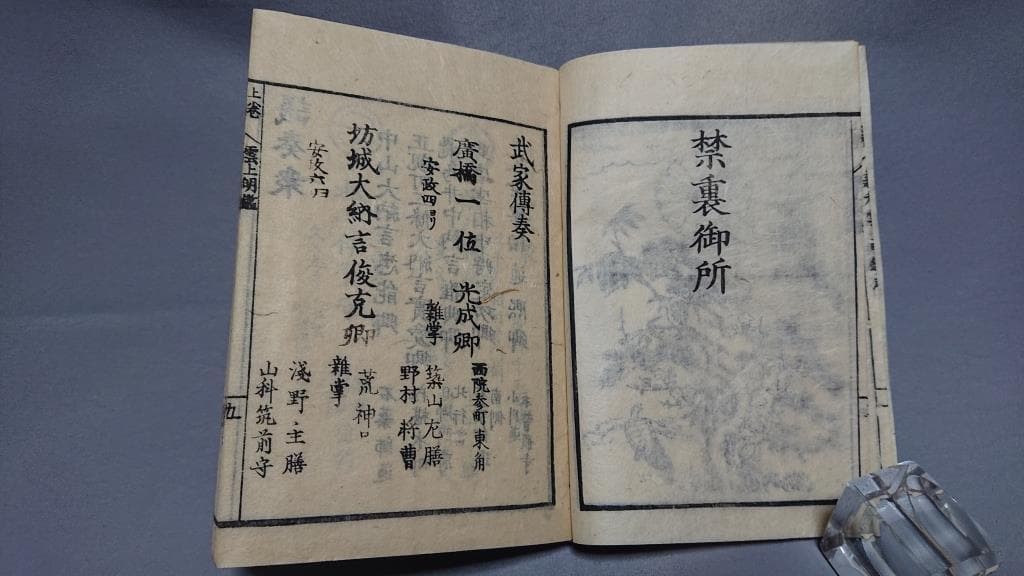 禁裏御所
武家傳奏
廣橋一位 光成卿
安政四
西院参町東角
雜掌
築山尢膳
野村将曹
坊城大納言俊克卿
安政六
荒神口
雜掌
淺野主膳
山科筑前守
上卷
雲上明鑑
九